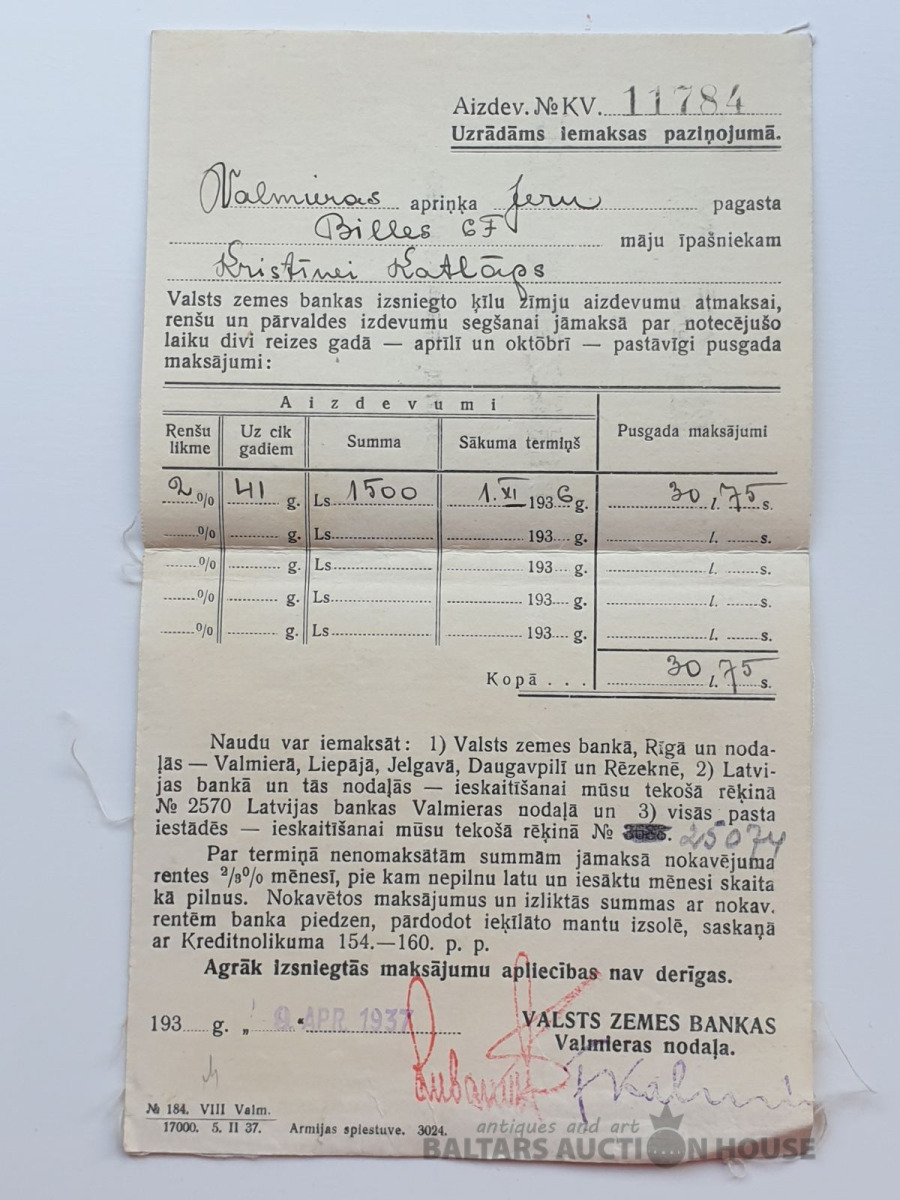 Aizdev. № KV. 11784
Uzrādāms iemaksas paziņojumā.
Valmieras apriņķa Jeru pagasta
Billes 67 māju īpašniekam
Kristīnei Katlāps
Valsts zemes bankas izsniegto ķīlu zīmju aizdevumu atmaksai,
renšu un pārvaldes izdevumu segšanai jāmaksā par notecējušo
laiku divi reizes gadā — aprīlī un oktōbrī — pastāvīgi pusgada
maksājumi:
Aizdevumi
Renšu likme Uz cik gadiem Summa Sākuma termiņš Pusgada maksājumi
2 % 41 g. Ls 1500 1. XI 1936 g. 30 l. 75 s.
% g. Ls 193 g. l. s.
% g. Ls 193 g. l. s.
% g. Ls 193 g. l. s.
% g. Ls 193 g. l. s.
Kopā . . . 30 l. 75 s.
Naudu var iemaksāt: 1) Valsts zemes bankā, Rīgā un noda-
ļās — Valmierā, Liepājā, Jelgavā, Daugavpilī un Rēzeknē, 2) Latvi-
jas bankā un tās nodaļās — ieskaitīšanai mūsu tekošā rēķinā
№ 2570 Latvijas bankas Valmieras nodaļā un 3) visās pasta
iestādēs — ieskaitīšanai mūsu tekošā rēķinā № 25074
Par termiņā nenomaksātām summām jāmaksā nokavējuma
rentes ²/₃% mēnesī, pie kam nepilnu latu un iesāktu mēnesi skaita
kā pilnus. Nokavētos maksājumus un izliktās summas ar nokav.
rentēm banka piedzen, pārdodot ieķīlāto mantu izsolē, saskaņā
ar Kreditnolikuma 154.—160. p. p.
Agrāk izsniegtās maksājumu apliecības nav derīgas.
193 g. „ 9. APR. 1937
VALSTS ZEMES BANKAS
Valmieras nodaļa.
№ 184. VIII Valm.
17000. 5. II 37. Armijas spiestuve. 3024.
antiques and art
BALTARS AUCTION HOUSE